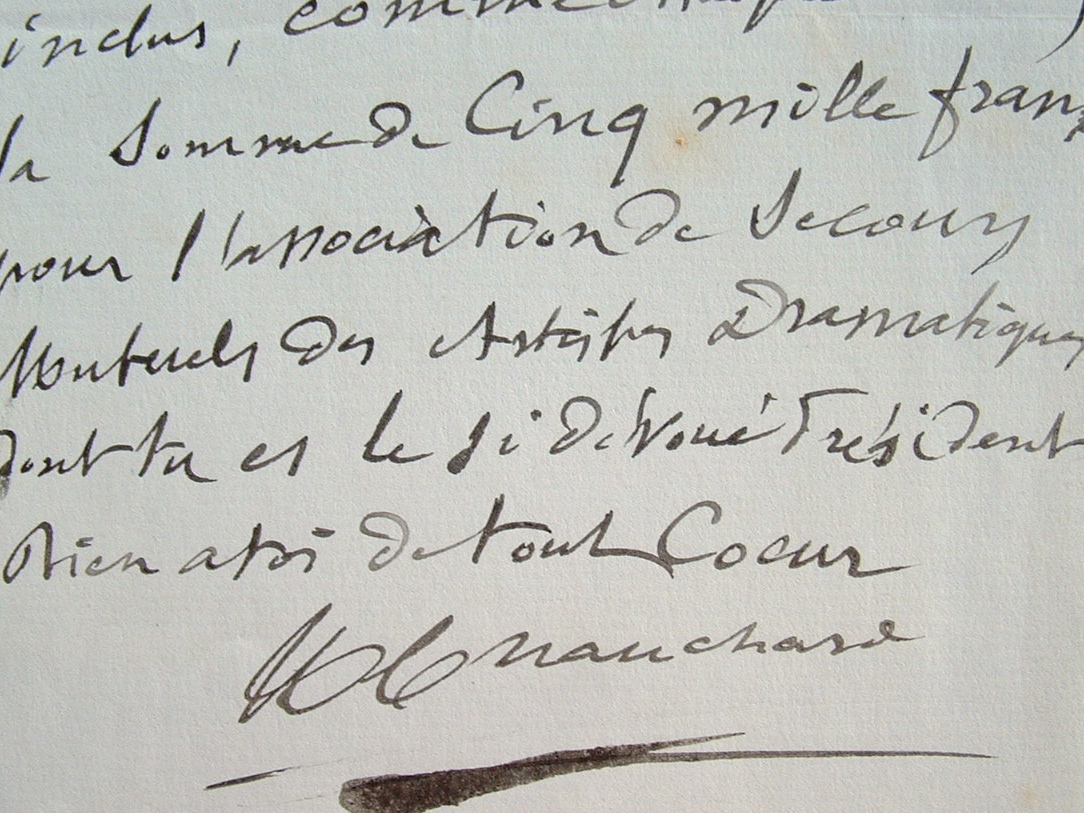 inclus,
la Somme de Cinq mille francs
pour l'association de Secours
Mutuels des Artistes Dramatiques
dont tu es le si dévoué Président
Bien a toi de tout Coeur